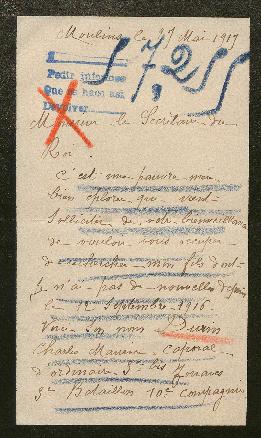 Moulins le 17 Mai 1917
Pedir informes
Que se haga así
Devolver
57.255
Monsieur le Secrétaire du
Roi
C'est une pauvre mère
bien éplorée qui vient
solliciter de votre bienveillance
de vouloir vous occuper
de rechercher mon fils dont
je n'ai pas de nouvelles depuis
le 12 Septembre 1916
Voici son nom
Charles Marceau Caporal
d'ordinaire 3e bis Zouaves
3e Bataillon 10e Compagnie